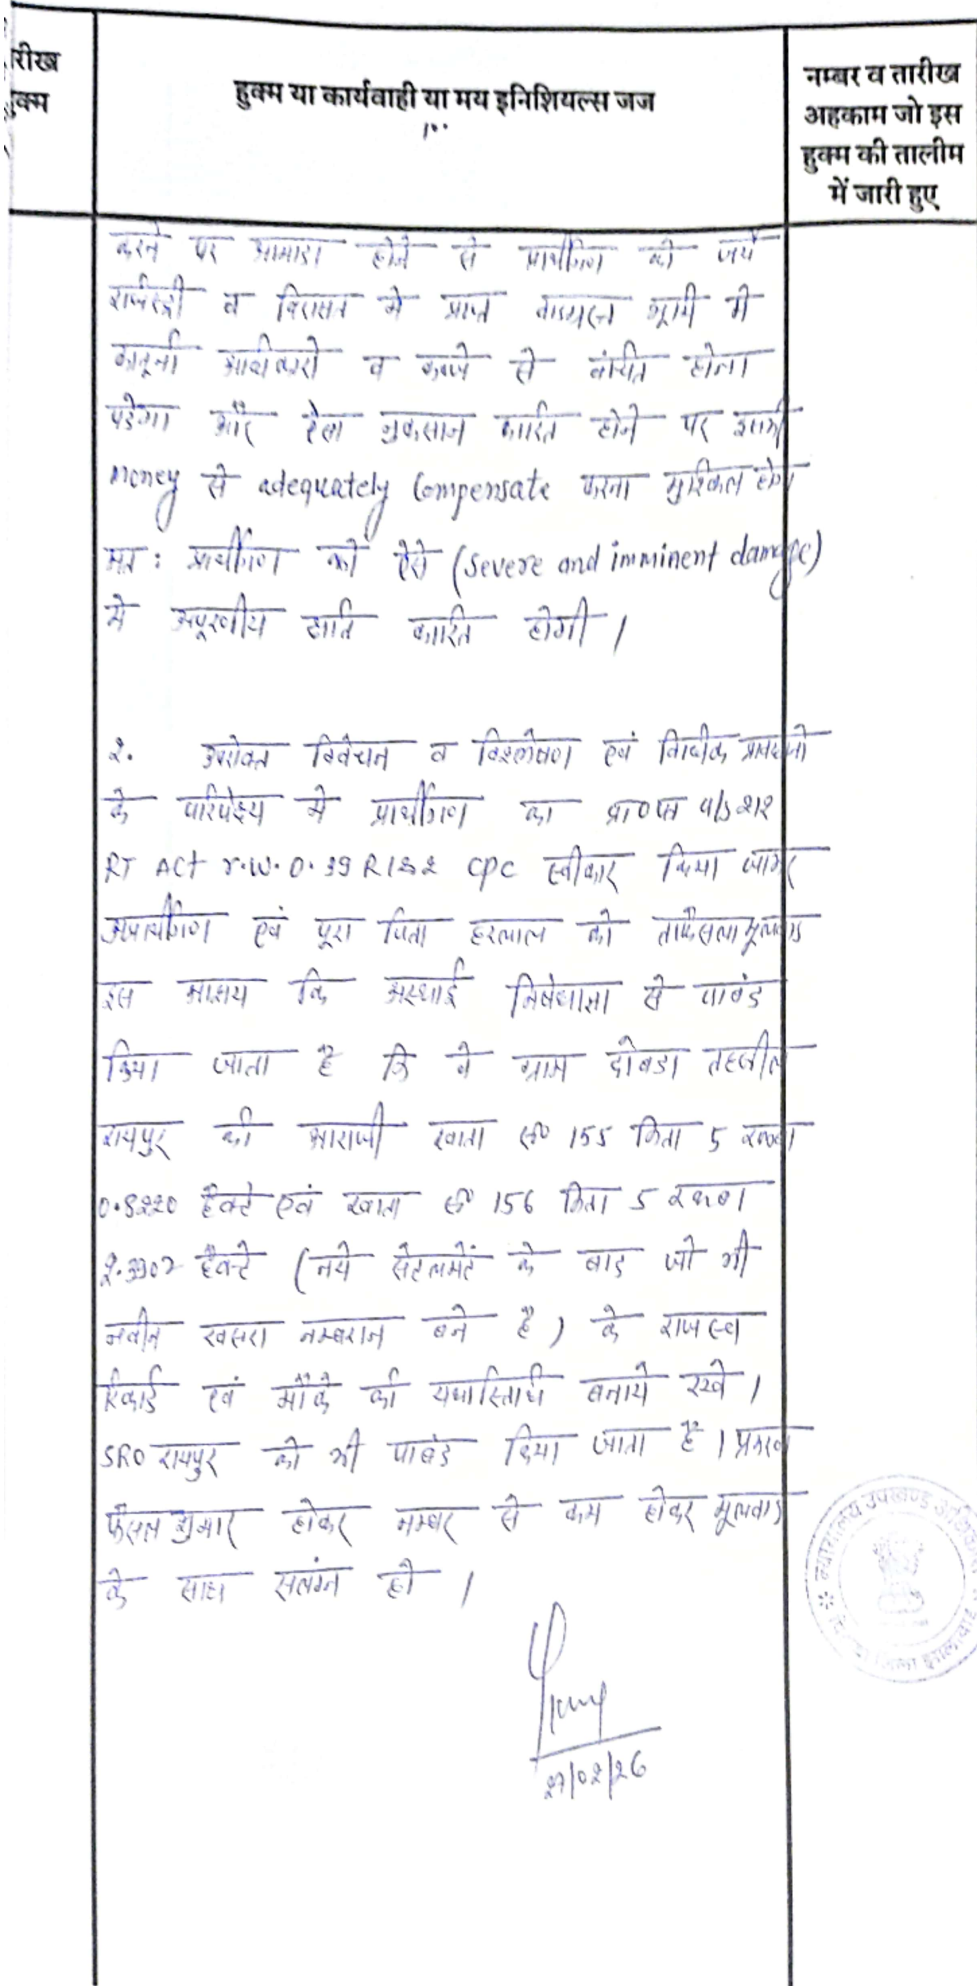 तारीख
हुक्म
हुक्म या कार्यवाही या मय इनिशियल्स जज
नम्बर व तारीख
अहकाम जो इस
हुक्म की तालीम
में जारी हुए
करने पर आमादा होने से प्रार्थीगण को जर्ये
रजिस्ट्री व विरासत मे प्राप्त वादग्रस्त भूमि मे
कानूनी अधिकारो व कब्जे से वंचित होना
पडेगा और ऐसा नुकसान कारित होने पर
money से adequately compensate करना मुश्किल होगा
अतः प्रार्थीगण को ऐसे (severe and imminent damage)
मे अपूरणीय क्षति कारित होगी ।
२. उपरोक्त विवेचन व विश्लेषण एवं विधीक प्रावधानो
के परिपेक्ष्य मे प्रार्थीगण का प्रा०पत्र u/s २१२
RT ACT r.w. O. ३९ R 1&२ cpc स्वीकार किया जाकर
अप्रार्थीगण एवं पूरा पिता हरलाल को ताफैसला मूलवाद
इस आशय कि अस्थाई निषेधाज्ञा से पाबंद
किया जाता है कि वे ग्राम दोबडा तहसील
रायपुर की आराजी खाता स० 155 किता 5 रकबा
0.8२२0 हैक्टे एवं खाता स० 156 किता 5 रकबा
२.३९0२ हैक्टे (नये सेटलमेंट के बाद जो भी
नवीन खसरा नम्बरान बने है) के राजस्व
रिकार्ड एवं मौके की यथास्तिथि बनाये रखे ।
SRO रायपुर को भी पाबंद किया जाता है । प्रकरण
फैसल शुमार होकर नम्बर से कम होकर मूलवाद
के साथ सलंग्न हो ।
२७/०२/२6
न्यायालय उपखण्ड अधिकारी
जिला झालावाड